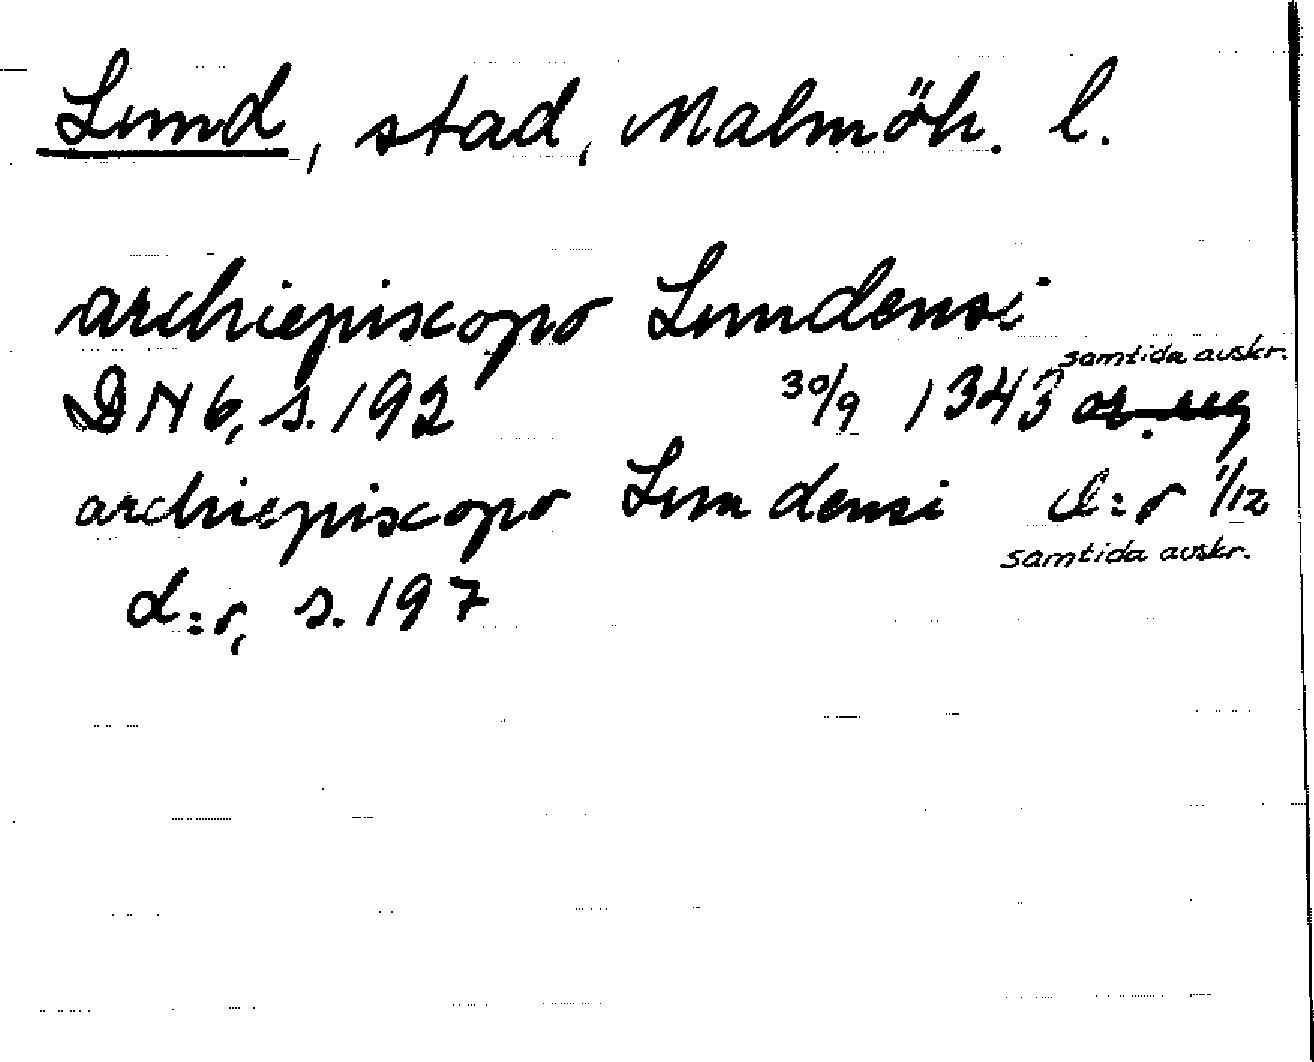 Lund, stad, Malmöh. l.
archiepiscopo Lundensi
samtida avskr.
DN 6, s. 192 30/9 1343 or. reg
archiepiscopo Lundensi d:o 1/12
samtida avskr.
d:o, s. 197